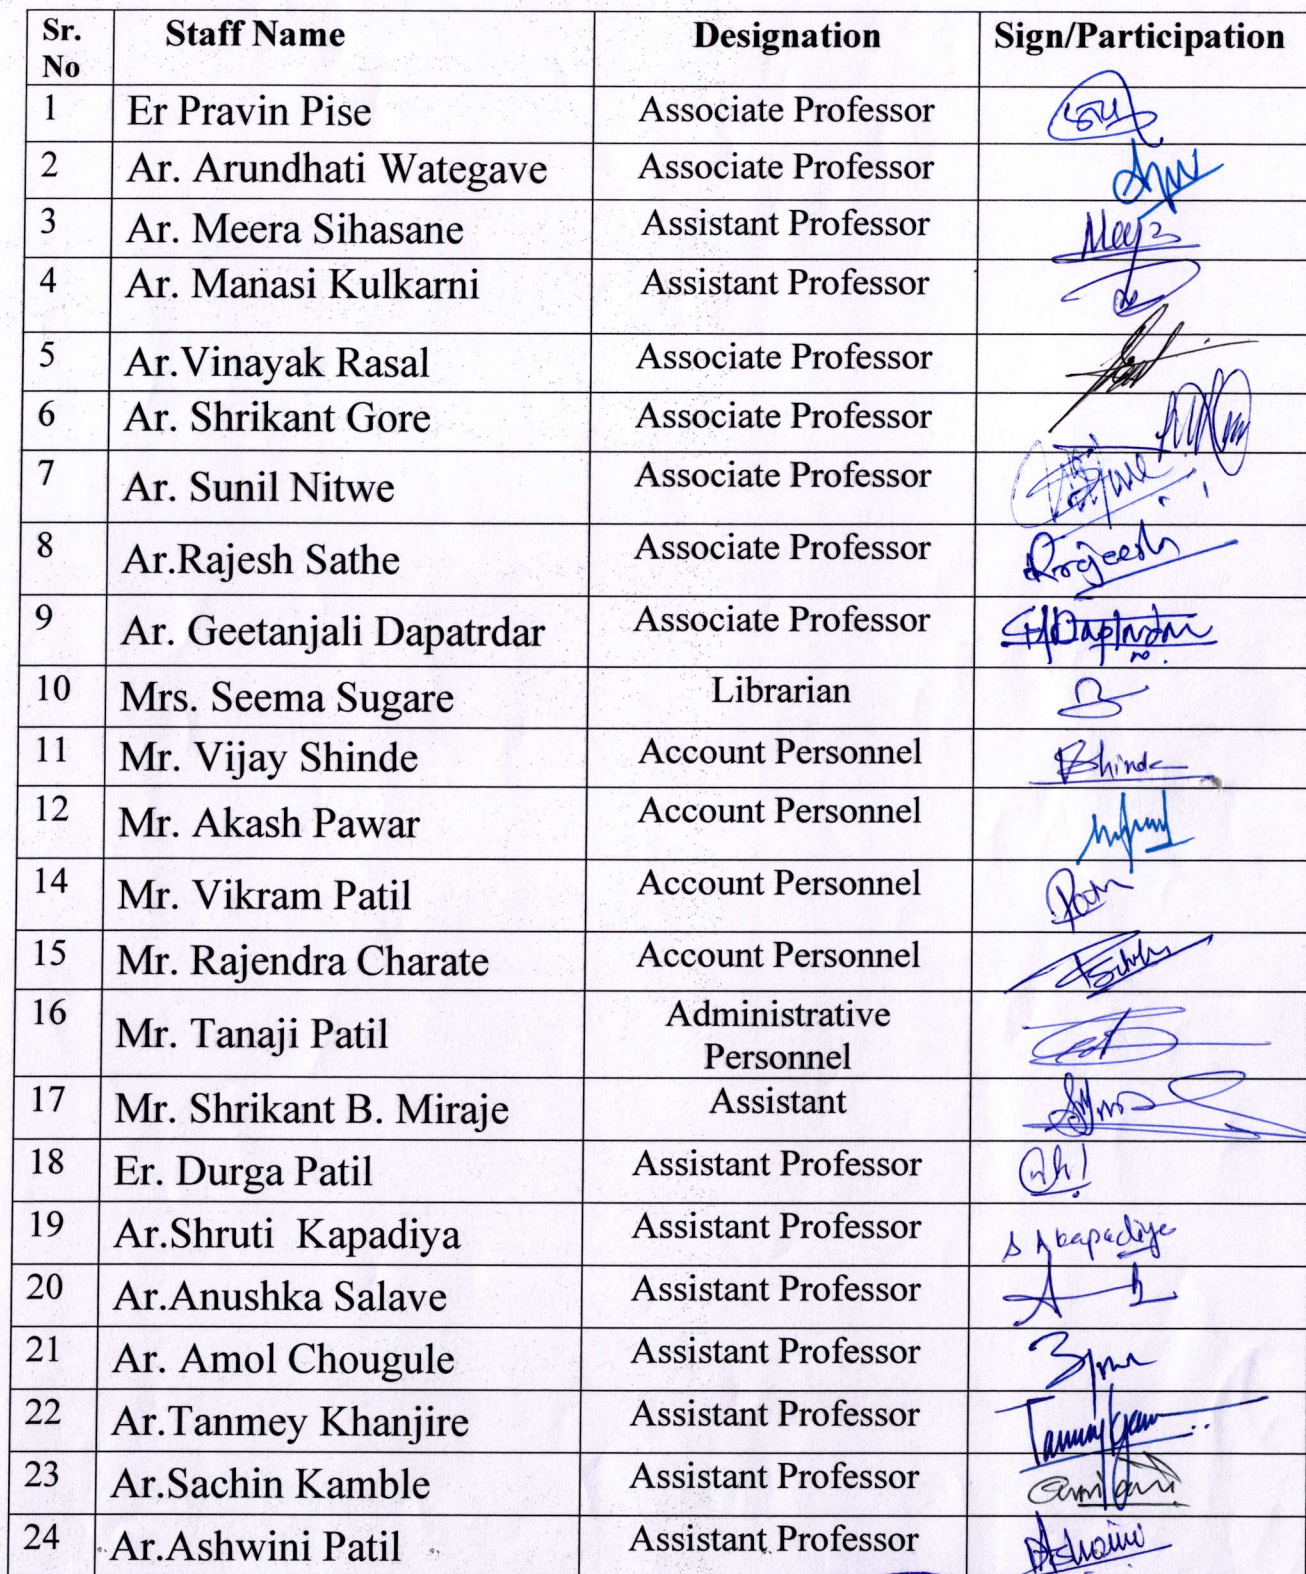 Sr. No Staff Name Designation Sign/Participation
1 Er Pravin Pise Associate Professor
2 Ar. Arundhati Wategave Associate Professor
3 Ar. Meera Sihasane Assistant Professor
4 Ar. Manasi Kulkarni Assistant Professor
5 Ar.Vinayak Rasal Associate Professor
6 Ar. Shrikant Gore Associate Professor
7 Ar. Sunil Nitwe Associate Professor
8 Ar.Rajesh Sathe Associate Professor
9 Ar. Geetanjali Dapatrdar Associate Professor
10 Mrs. Seema Sugare Librarian
11 Mr. Vijay Shinde Account Personnel
12 Mr. Akash Pawar Account Personnel
14 Mr. Vikram Patil Account Personnel
15 Mr. Rajendra Charate Account Personnel
16 Mr. Tanaji Patil Administrative Personnel
17 Mr. Shrikant B. Miraje Assistant
18 Er. Durga Patil Assistant Professor
19 Ar.Shruti Kapadiya Assistant Professor
20 Ar.Anushka Salave Assistant Professor
21 Ar. Amol Chougule Assistant Professor
22 Ar.Tanmey Khanjire Assistant Professor
23 Ar.Sachin Kamble Assistant Professor
24 Ar.Ashwini Patil Assistant Professor